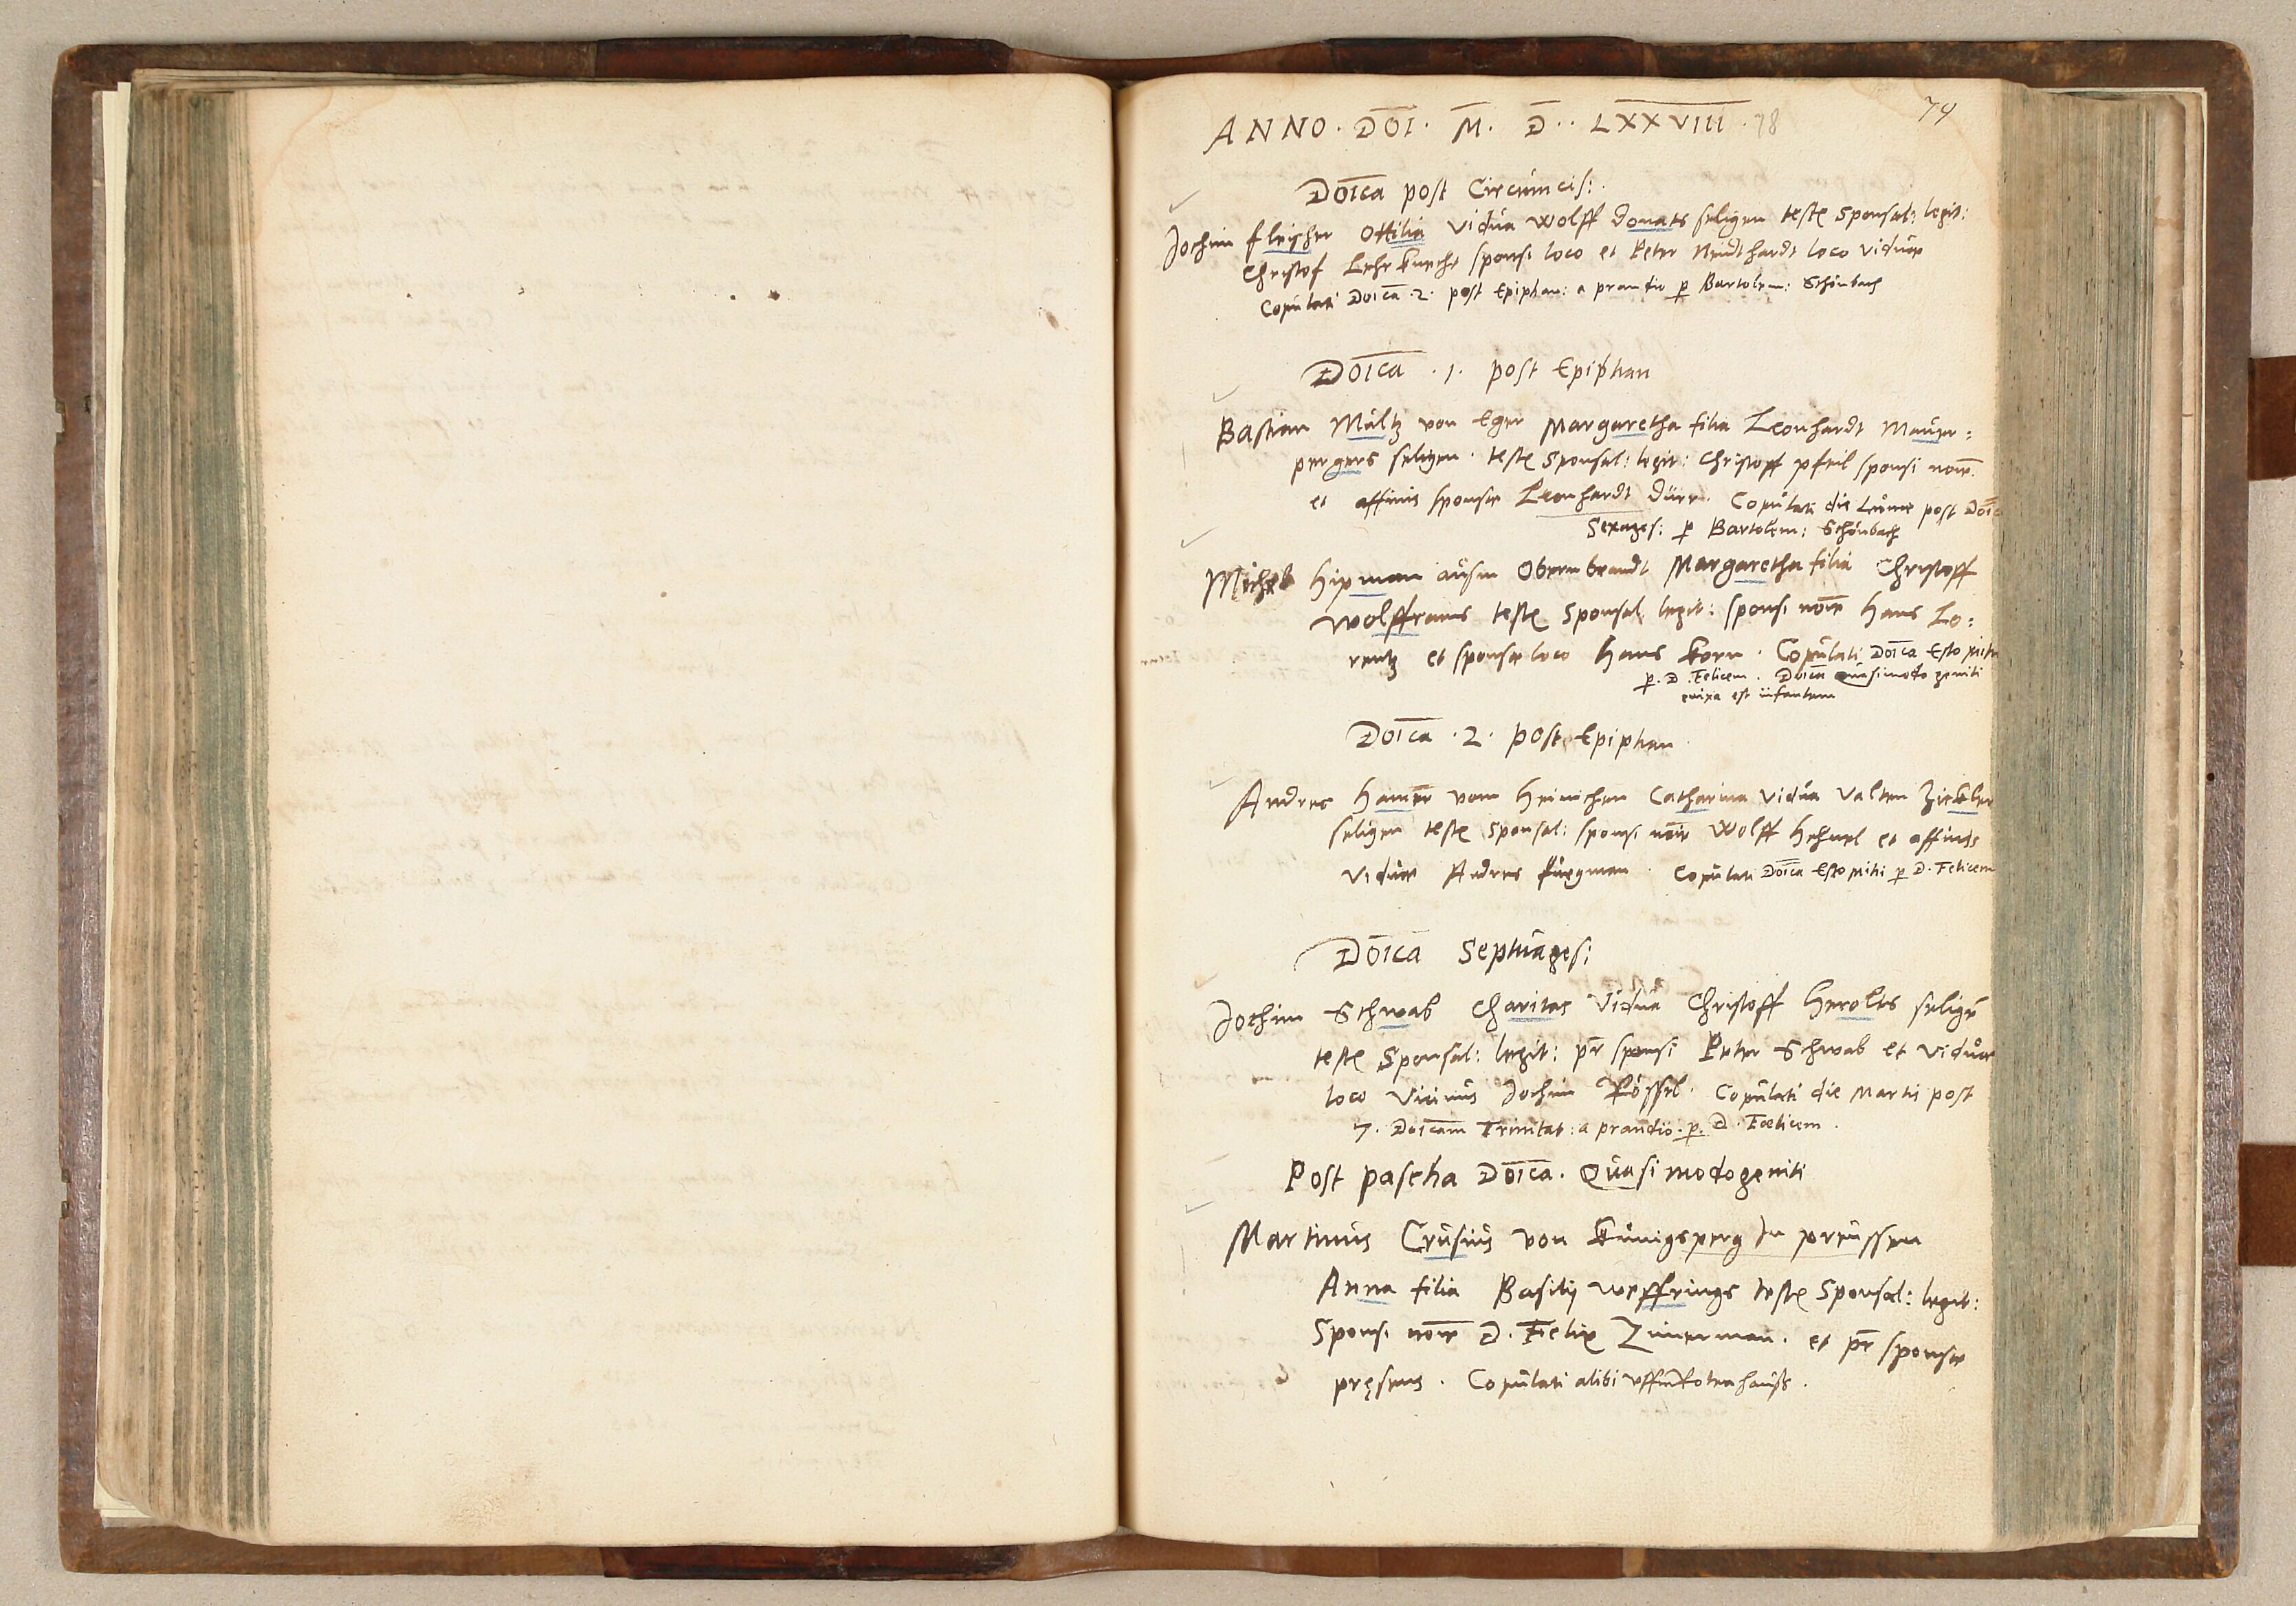 79
ANNO. DOI. M. D.. LXXVIII. 78
Doica post Circumcis:
Jochim fleischer Ottilia Vidua Wolff donats seligen testes Sponsal: legit:
Christof Lehrknecht sponsi loco et Peter Neidthardt loco viduae
Copulati Doica .2. post Epiphan: a prandio p Bartolem: Schönbach
Doica .1. post Epiphan
Bastian Maltz von Eger Margaretha filia Leonhardt Maur:
pergers seligen. testes Sponsal: legit: Christoff pfeil sponsi noie
et affinis sponsae Leonhardt dürr. Copulati die Lunae post Doic
Sexages: p Bartolem: Schönbach
Michel hipman ausm Obernbrandt Margaretha filia Christoff
Wolfframs testes Sponsal legit: sponsi noie hans Lo:
rentz et sponsae loco hans korn. Copulati Doica Esto mihi
p. D. Felicem. Doica Quasimodo geniti
enixa est infantem
Doica .2. post Epiphan
Andres hamer vom heinichen Catharina vidua Valten Zickler
seligen testes Sponsal: sponsi noie Wolff hehnel et affinis
viduae Andres Copulati Doica Esto mihi p D. Felicem
Doica Septuagesi
Jochim Schwab Charitas Vidua Christoff herolts selige
testes Sponsal: legit: pr sponsi Peter Schwab et viduae
loco vicinus Jochim Rössel. Copulati die Martis post
7. Doicam Trinitat: a prandio. p. D. Foelicem.
Post pascha Doica. Quasi modogeniti
Martinus Crusius von künigsperg In preussen
Anna filia Basilij Weffrings testes Sponsal: legit:
Sponsi noie D. Felix Zimerman. et pr sponsae
pręsens. Copulati alibi uffm Rotenhauss.